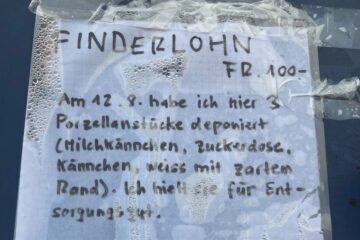 FINDERLOHN
FR. 100-
Am 12.8. habe ich hier 3
Porzellanstücke deponiert
(Milchkännchen, Zuckerdose,
Kännchen, weiss mit zartem
Rand). Ich hielt sie für Ent-
sorgungsgut.